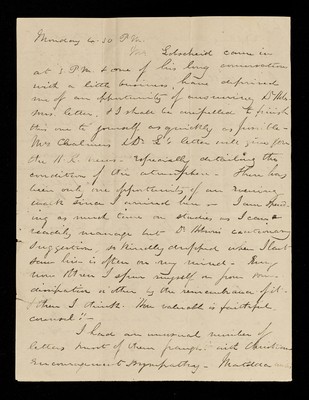 Monday 4.30 P.M.
Mr Lobscheid came in
at 3 P.M. & one of his long conversation
with a little business, have deprived
me of an opportunity of answering Dr
letter, & I shall be compelled to finish
this one to yourself as quickly as possible
Mrs Chalmers & Dr L's letter will give you
the H.K. news. especially detailing the
condition of the atmosphere - There has
been only one opportunity of an evening
walk since I arrived here - I am spend
ing as much time on studies as I can
readily manage but Dr cautionary
suggestion, so kindly dropped when I last
saw him is often on my mind - Every
now & then I spur myself on from some
dissipation or other by the remembrance of it.
& then I think "How valuable is faithful
counsel"!-
I had an unusual number of
letters most of them with Christian
encouragement & sympathy -